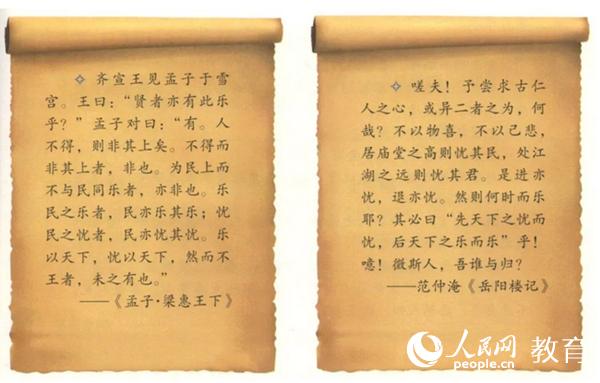 齐宣王见孟子于雪
宫。王曰：“贤者亦有此乐
乎？”孟子对曰：“有。人
不得，则非其上矣。不得而
非其上者，非也。为民上而
不与民同乐者，亦非也。乐
民之乐者，民亦乐其乐；忧
民之忧者，民亦忧其忧。乐
以天下，忧以天下，然而不
王者，未之有也。”
——《孟子·梁惠王下》
嗟夫！予尝求古仁
人之心，或异二者之为，何
哉？不以物喜，不以己悲，
居庙堂之高则忧其民，处江
湖之远则忧其君。是进亦
忧，退亦忧。然则何时而乐
耶？其必曰“先天下之忧而
忧，后天下之乐而乐”乎！
噫！微斯人，吾谁与归？
——范仲淹《岳阳楼记》
人民网 教育
people.cn